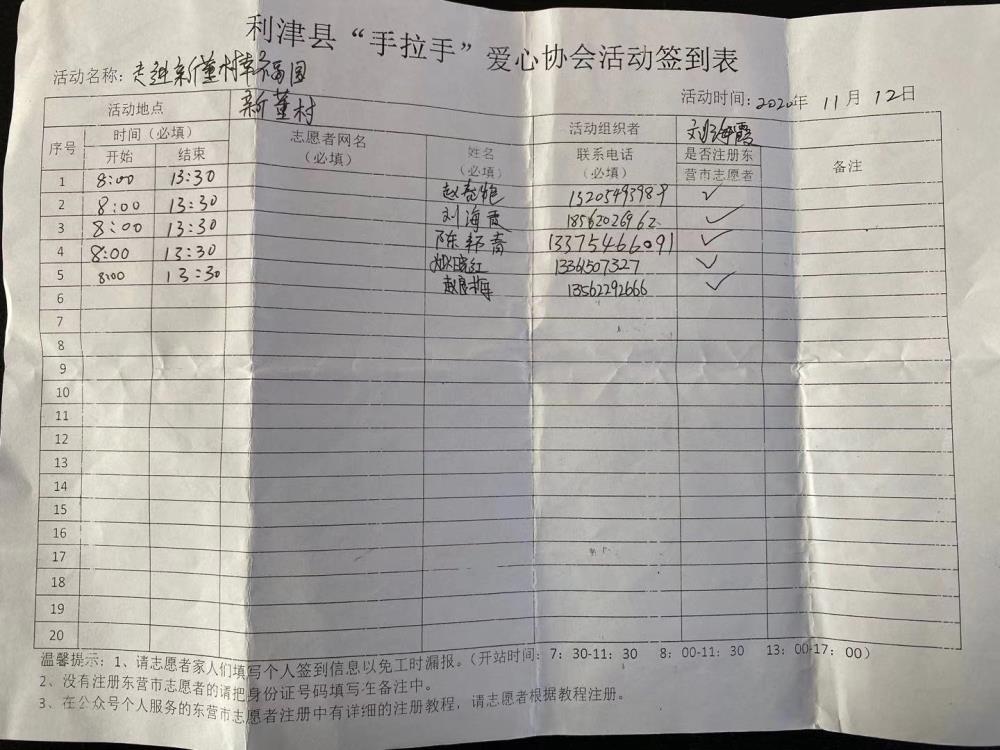 利津县“手拉手”爱心协会活动签到表
活动名称：走进新董村幸福园
活动时间：2020年 11月 12日
活动地点 新董村
活动组织者 刘海霞
序号 时间（必填） 志愿者网名（必填） 姓名（必填） 联系电话（必填） 是否注册东营市志愿者 备注
开始 结束
1 8:00 13:30 ✓
2 8:00 13:30 刘海霞 18562026962 ✓
3 8:00 13:30 13375466091 ✓
4 8:00 13:30 13361507327 ✓
5 8:00 13:30 13562292666 ✓
6
7
8
9
10
11
12
13
14
15
16
17
18
19
20
温馨提示：1、请志愿者家人们填写个人签到信息以免工时漏报。（开站时间：7：30-11：30 8：00-11：30 13：00-17：00）
2、没有注册东营市志愿者的请把身份证号码填写在备注中。
3、在公众号个人服务的东营市志愿者注册中有详细的注册教程，请志愿者根据教程注册。